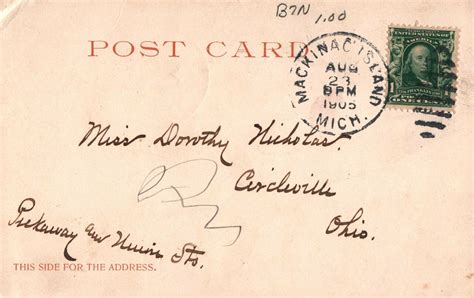 B7N 1.00
POST CARD
MACKINAC ISLAND
AUG
23
8PM
1905
MICH.
UNITED STATES OF AMERICA
ONE CENT
Miss Dorothy Nicholas.
Circleville
Ohio.
Pickaway and Sts.
THIS SIDE FOR THE ADDRESS.